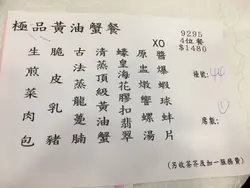 極品黃油蟹餐
9295
4位餐
$1480
XO醬爆蝦球蚌片
原盅燉響螺湯
蠔皇海花膠扣翡翠
清蒸頂級黃油蟹
古法蒸龍躉腩
脆皮乳豬
生煎菜肉包
檯號:
席數: ①
(另收茶芥及加一服務費)